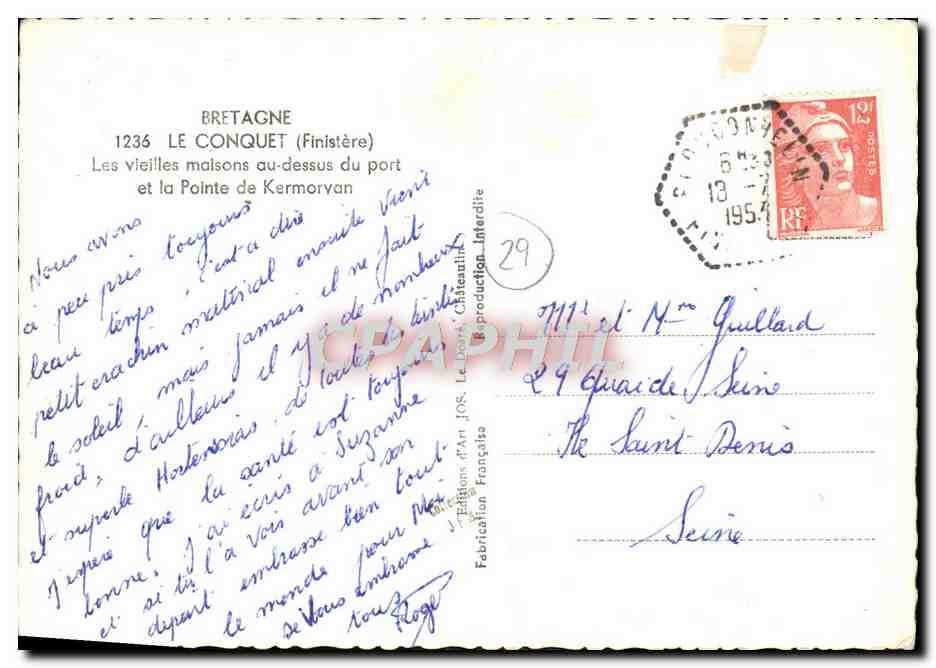 BRETAGNE
1236 LE CONQUET (Finistère)
Les vieilles maisons au-dessus du port
et la Pointe de Kermorvan
Nous avons
à peu près toujours
beau temps, c'est à dire
petit crachin matinal ensuite vient
le soleil, mais jamais il ne fait
froid, d'ailleurs il y a de nombreux
et superbe Hortensias de toutes les teintes
J'espère que la santé est toujours
bonne. J'ai écris à Suzanne
et si tu l'a vois avant son
départ embrasse bien tout
le monde pour Moi
Vous embrasse
tous Roger
Editions d'Art JOS. Le Doaré, Châteaulin
Fabrication Française
Reproduction Interdite
29
CPAPHIL
12F
POSTES
RF
6H
18
195
Ml et Mme Guillard
29 quai de Seine
Ile Saint Denis
Seine